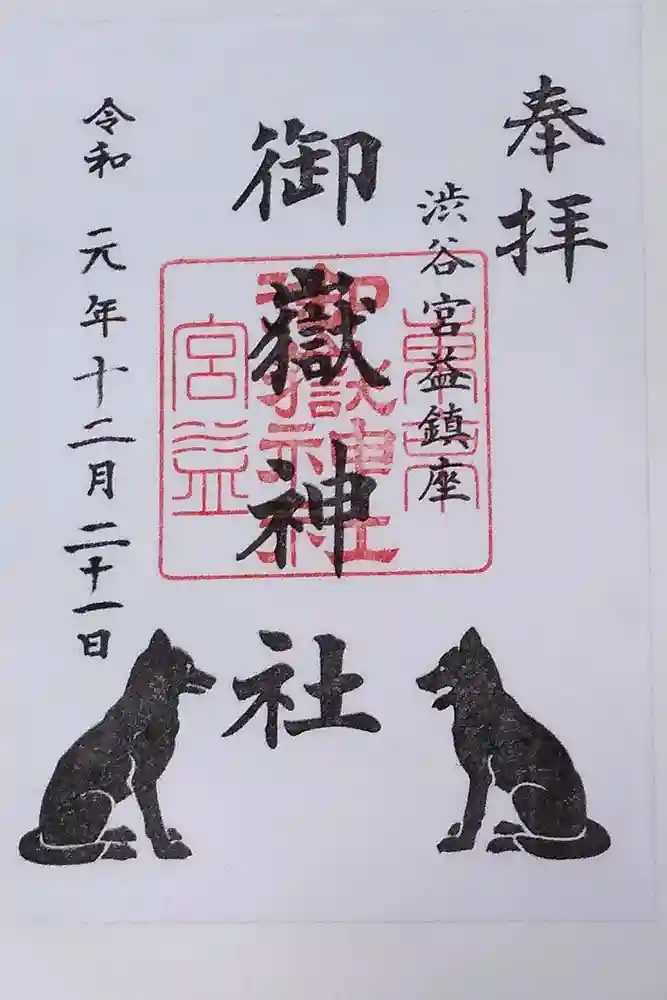 奉拝
渋谷宮益鎮座
御嶽神社
令和 元年十二月二十一日
東京
御嶽神社
宮益